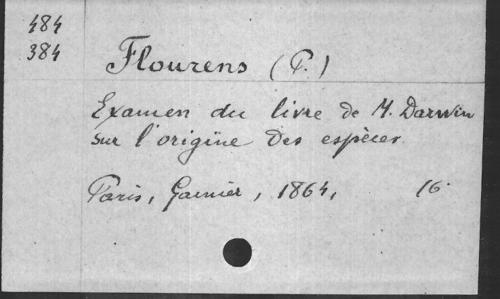 484
384
Flourens (P.)
Examen du livre de M. Darwin
sur l'origine des espèces
Paris, Garnier, 1864, 16°